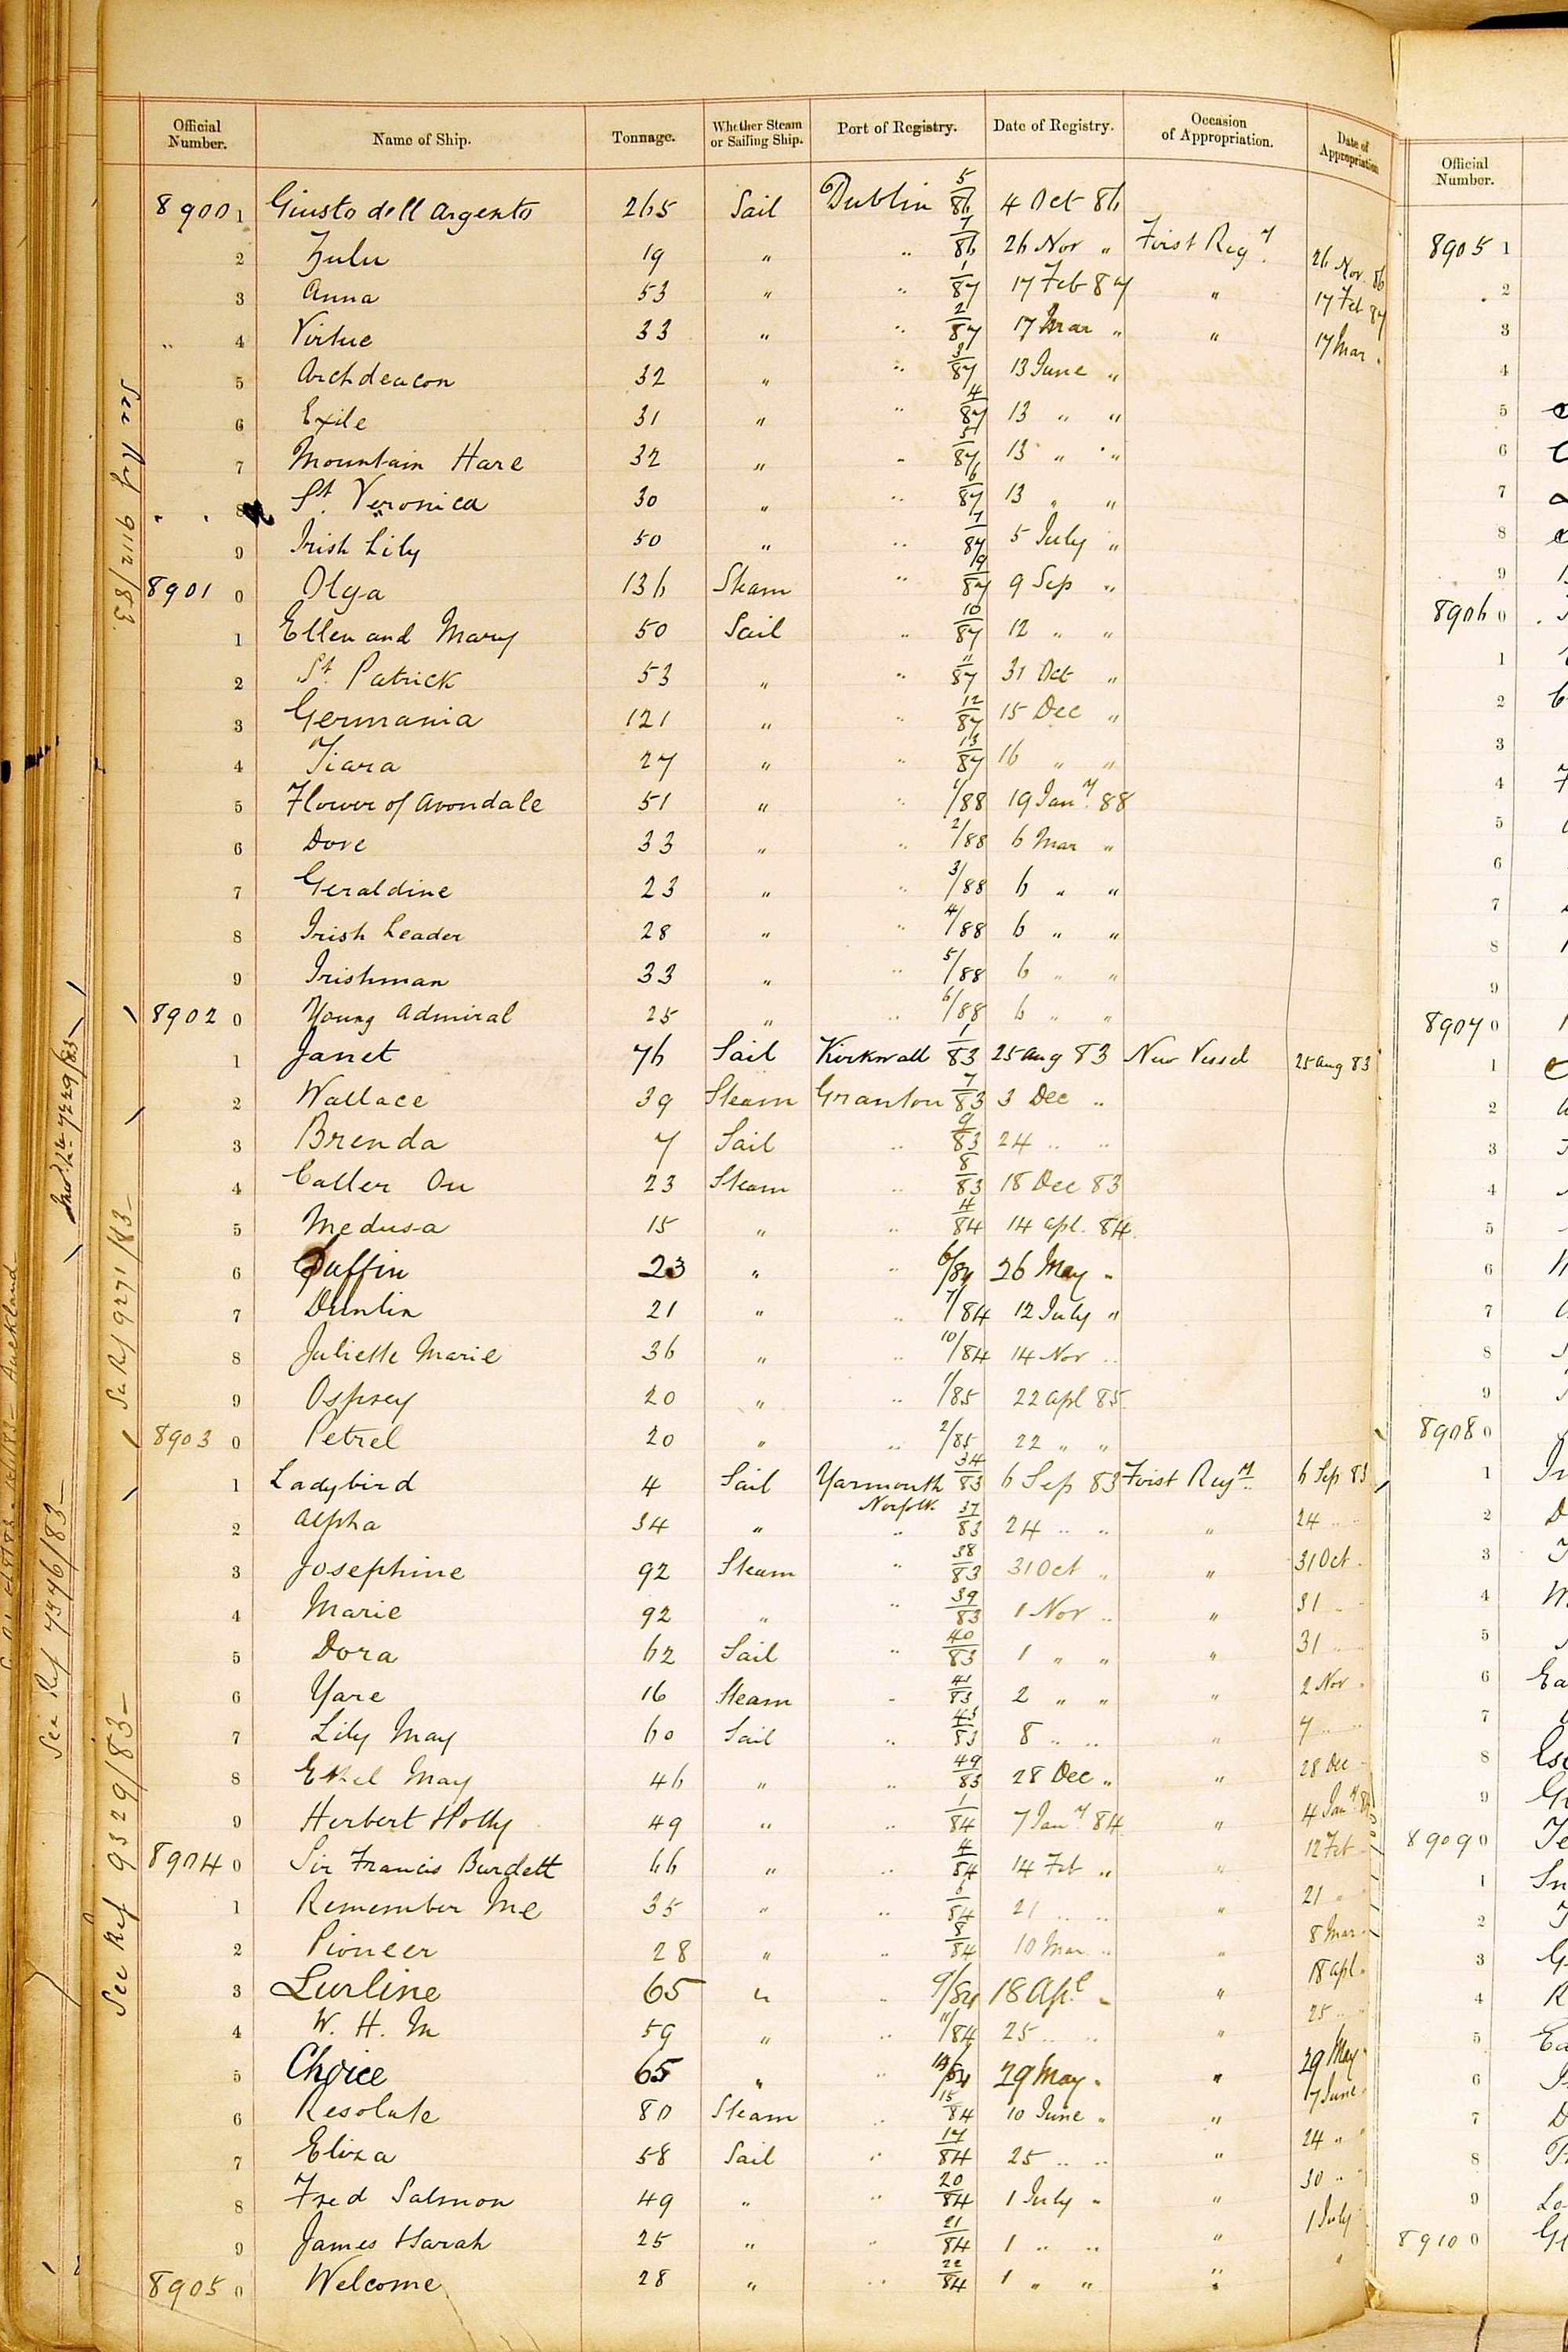 Official Number. Name of Ship. Tonnage. Whether Steam or Sailing Ship. Port of Registry. Date of Registry. Occasion of Appropriation. Date of Appropriation
8900 1 Giusto dell Argento 265 Sail Dublin 5/86 4 Oct 86
2 Zulu 19 " " 7/86 26 Nov " First Regy. 26 Nov. 86
3 Anna 53 " " 1/87 17 Feb 87 " 17 Feb 87
" 4 Virtue 33 " " 2/87 17 Mar " " 17 Mar "
5 Archdeacon 32 " " 3/87 13 June "
6 Exile 31 " " 4/87 13 " "
7 Mountain Hare 32 " " 5/87 13 " "
8 St. Veronica 30 " " 6/87 13 " "
9 Irish Lily 50 " " 7/87 5 July "
8901 0 Olga 136 Steam " 9/87 9 Sep "
1 Ellen and Mary 50 Sail " 10/87 12 " "
2 St. Patrick 53 " " 11/87 31 Oct "
3 Germania 121 " " 12/87 15 Dec "
4 Tiara 27 " " 13/87 16 " "
5 Flower of Avondale 51 " " 1/88 19 Jany. 88
6 Dove 33 " " 2/88 6 Mar "
7 Geraldine 23 " " 3/88 6 " "
8 Irish Leader 28 " " 4/88 6 " "
9 Irishman 33 " " 5/88 6 " "
8902 0 Young Admiral 25 " " 6/88 6 " "
1 Janet 76 Sail Kirkwall 1/83 25 Aug 83 New Vessel 25 Aug 83
2 Wallace 39 Steam Granton 7/83 3 Dec "
3 Brenda 7 Sail " 9/83 24 " "
4 Caller Ou 23 Steam " 8/83 18 Dec 83
5 Medusa 15 " " 4/84 14 Apl. 84
6 Puffin 23 " " 6/84 26 May "
7 Dunlin 21 " " 7/84 12 July "
8 Juliette Marie 36 " " 10/84 14 Nov "
9 Osprey 20 " " 1/85 22 Apl 85
8903 0 Petrel 20 " " 2/85 22 " "
1 Ladybird 4 Sail Yarmouth Norfolk 34/83 6 Sep 83 First Regy. 6 Sep 83
2 Alpha 34 " " 37/83 24 " " " 24 " "
3 Josephine 92 Steam " 38/83 31 Oct " " 31 Oct "
4 Marie 92 " " 39/83 1 Nov " " 31 " "
5 Dora 62 Sail " 40/83 1 " " " 31 " "
6 Yare 16 Steam " 41/83 2 " " " 2 Nov "
7 Lily May 60 Sail " 43/83 8 " " " 7 " "
8 Ethel May 46 " " 49/83 28 Dec " " 28 Dec "
9 Herbert Holly 49 " " 1/84 7 Jany 84 " 4 Jany 84
8904 0 Sir Francis Burdett 66 " " 4/84 14 Feb " " 12 Feb "
1 Remember Me 35 " " 5/84 21 " " " 21 " "
2 Pioneer 28 " " 8/84 10 Mar " " 8 Mar "
3 Lurline 65 " " 9/84 18 Apl " " 18 Apl "
4 W. H. M 59 " " 11/84 25 " " " 25 " "
5 Choice 65 " " 29 May " " 29 May "
6 Resolute 80 Steam " 15/84 10 June " " 7 June "
7 Eliza 58 Sail " 17/84 25 " " " 24 " "
8 Fred Salmon 49 " " 20/84 1 July " " 30 " "
9 James & Sarah 25 " " 21/84 1 " " " 1 July
8905 0 Welcome 28 " " 22/84 1 " " " "
See Ref 9112/83
See Ref 9271/83
See Ref 9329/83
See Ref 7376/83
7229/83
Auckland
Official Number.
8905 1
2
3
4
5
6
7
8
9
8906 0
1
2
3
4
5
6
7
8
9
8907 0
1
2
3
4
5
6
7
8
9
8908 0
1
2
3
4
5
6
7
8
9
8909 0
1
2
3
4
5
6
7
8
9
8910 0